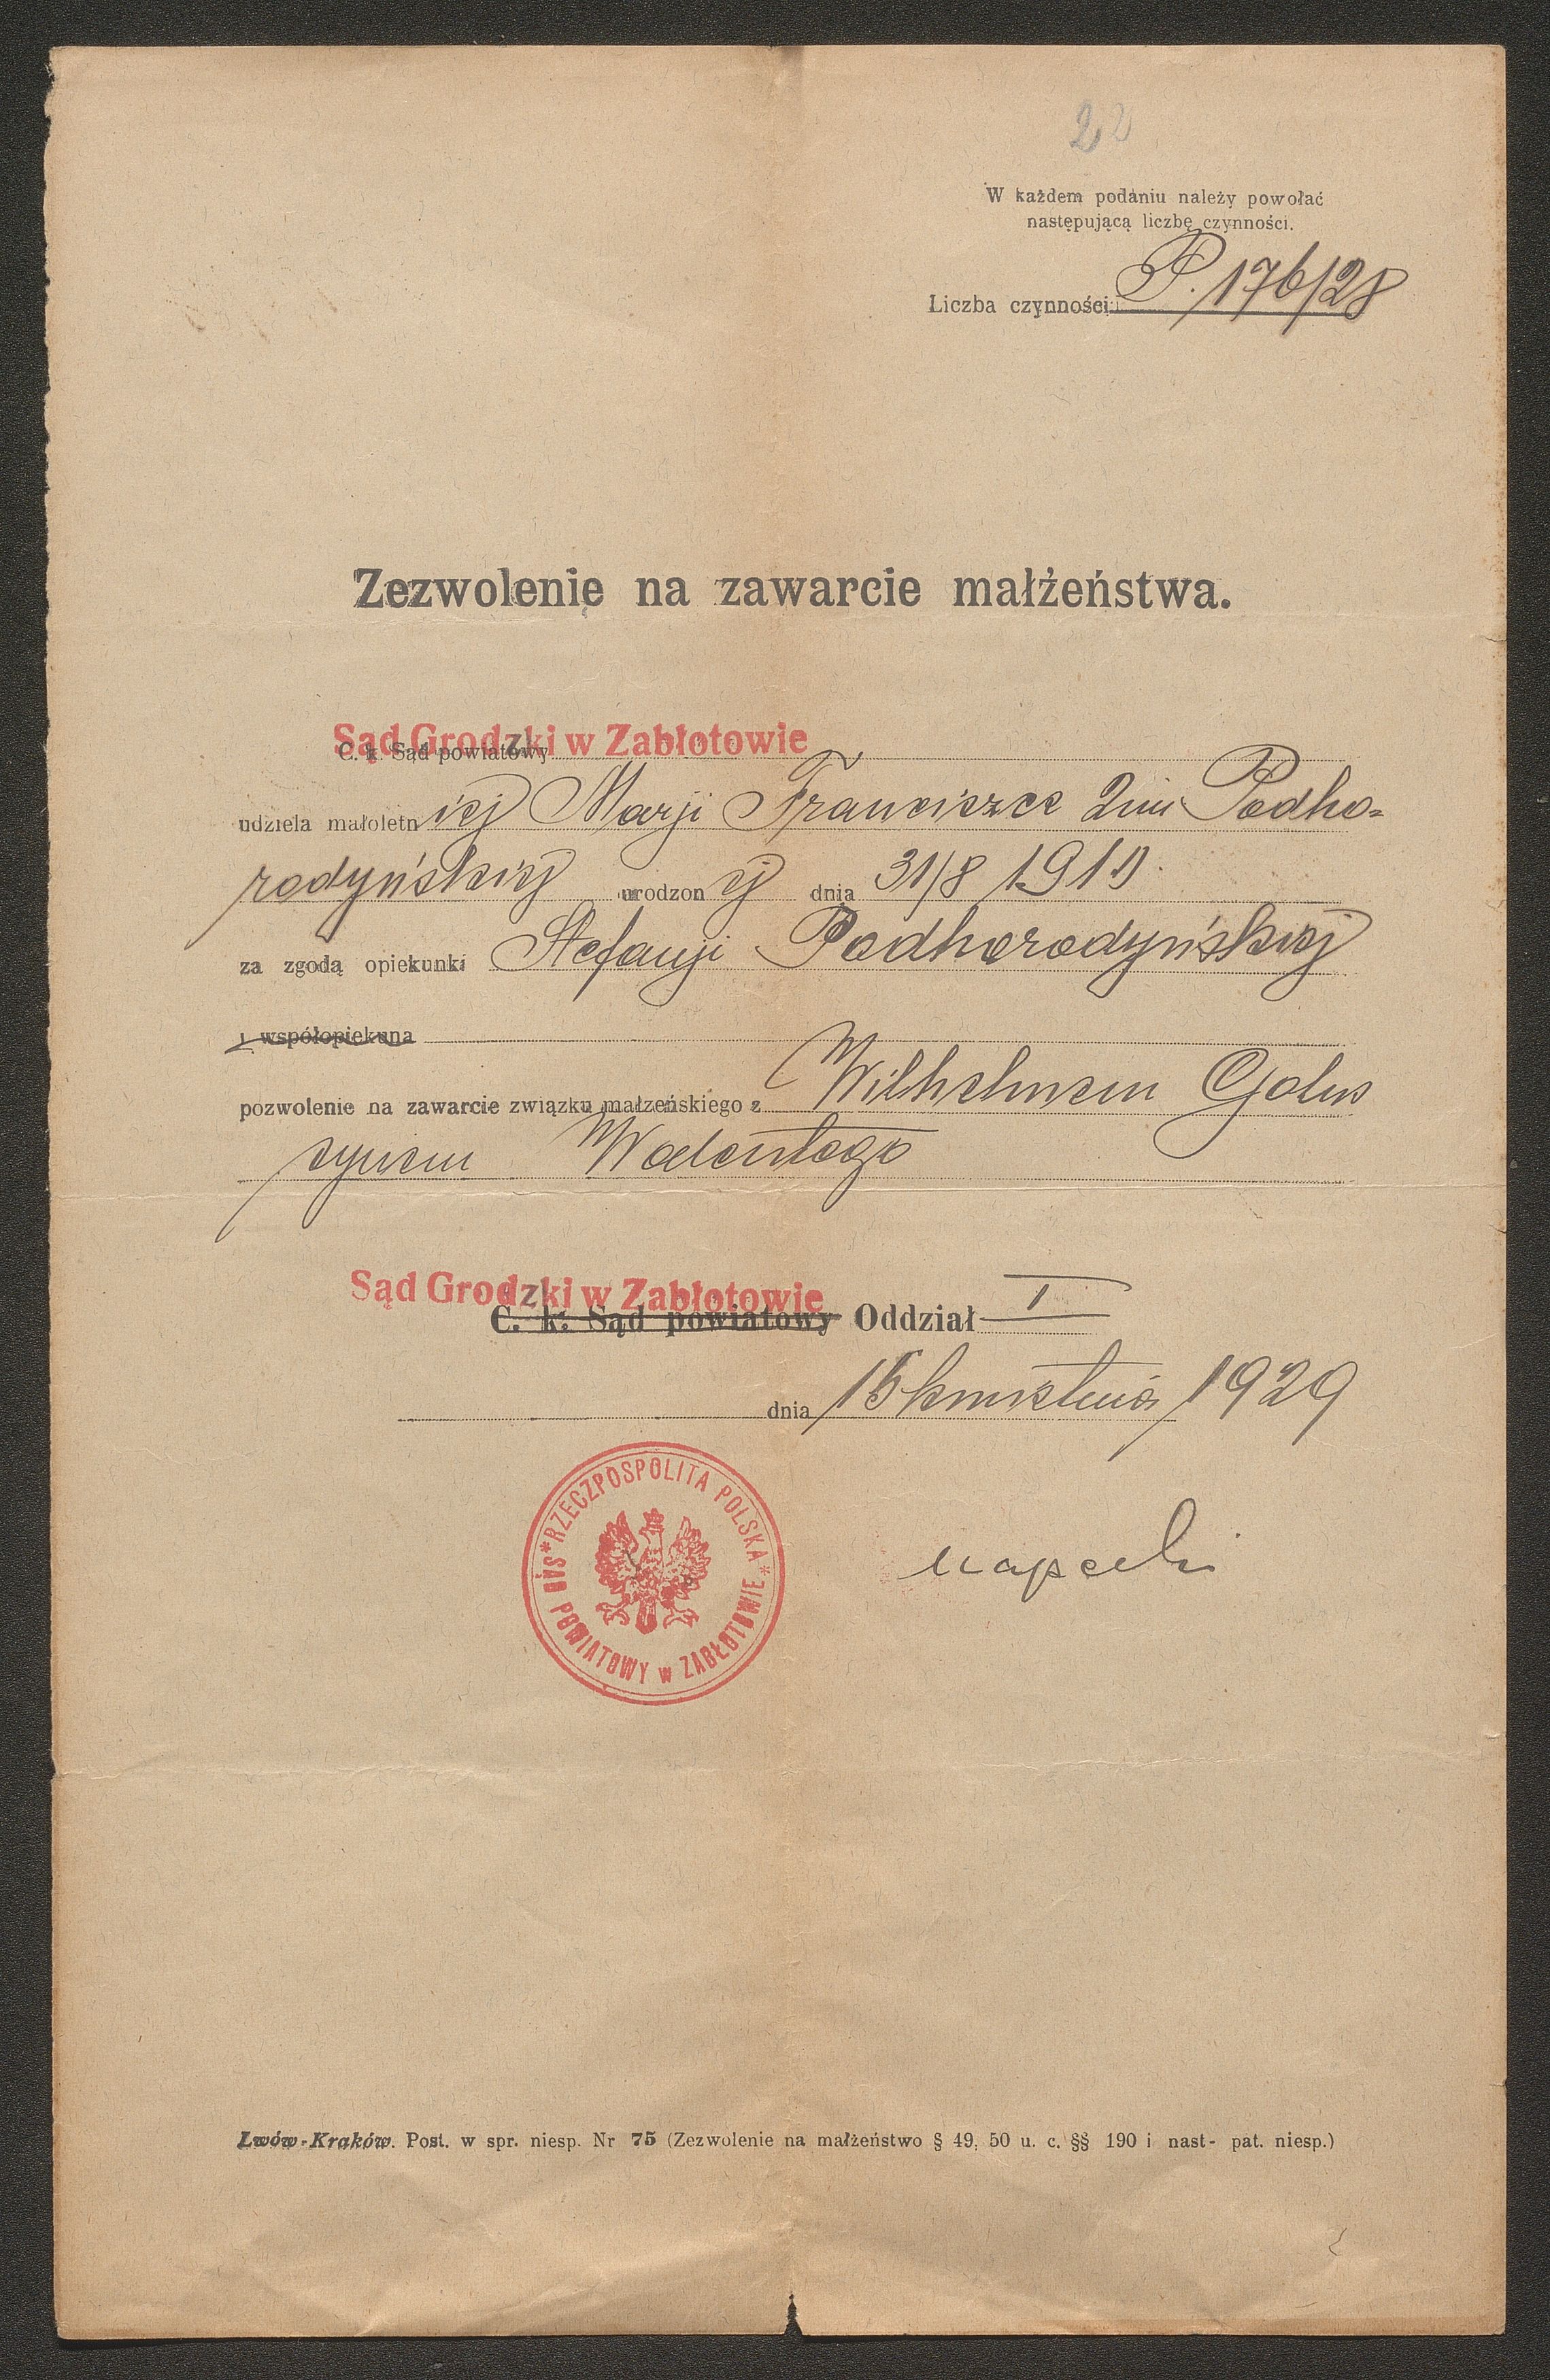 W każdem podaniu należy powołać
następującą liczbę czynności.
Liczba czynności: P. 176/28
Zezwolenie na zawarcie małżeństwa.
Sąd Grodzki w Zabłotowie
C. k. Sąd powiatowy
udziela małoletn iej Marji Franciszce 2im Podho-
rodyńskiej urodzon ej dnia 31/8 191
za zgodą opiekunki Stefanji Podhorodyńskiej
i współopiekuna
pozwolenie na zawarcie związku małżeńskiego z Wilhelmem Golus
synem Walentego
Sąd Grodzki w Zabłotowie
C. k. Sąd powiatowy Oddział I
dnia 15 kwietnia 1929
*RZECZPOSPOLITA POLSKA*
SĄD POWIATOWY w ZABŁOTOWIE
Lwów-Kraków. Post. w spr. niesp. Nr 75 (Zezwolenie na małżeństwo § 49, 50 u. c. §§ 190 i nast- pat. niesp.)